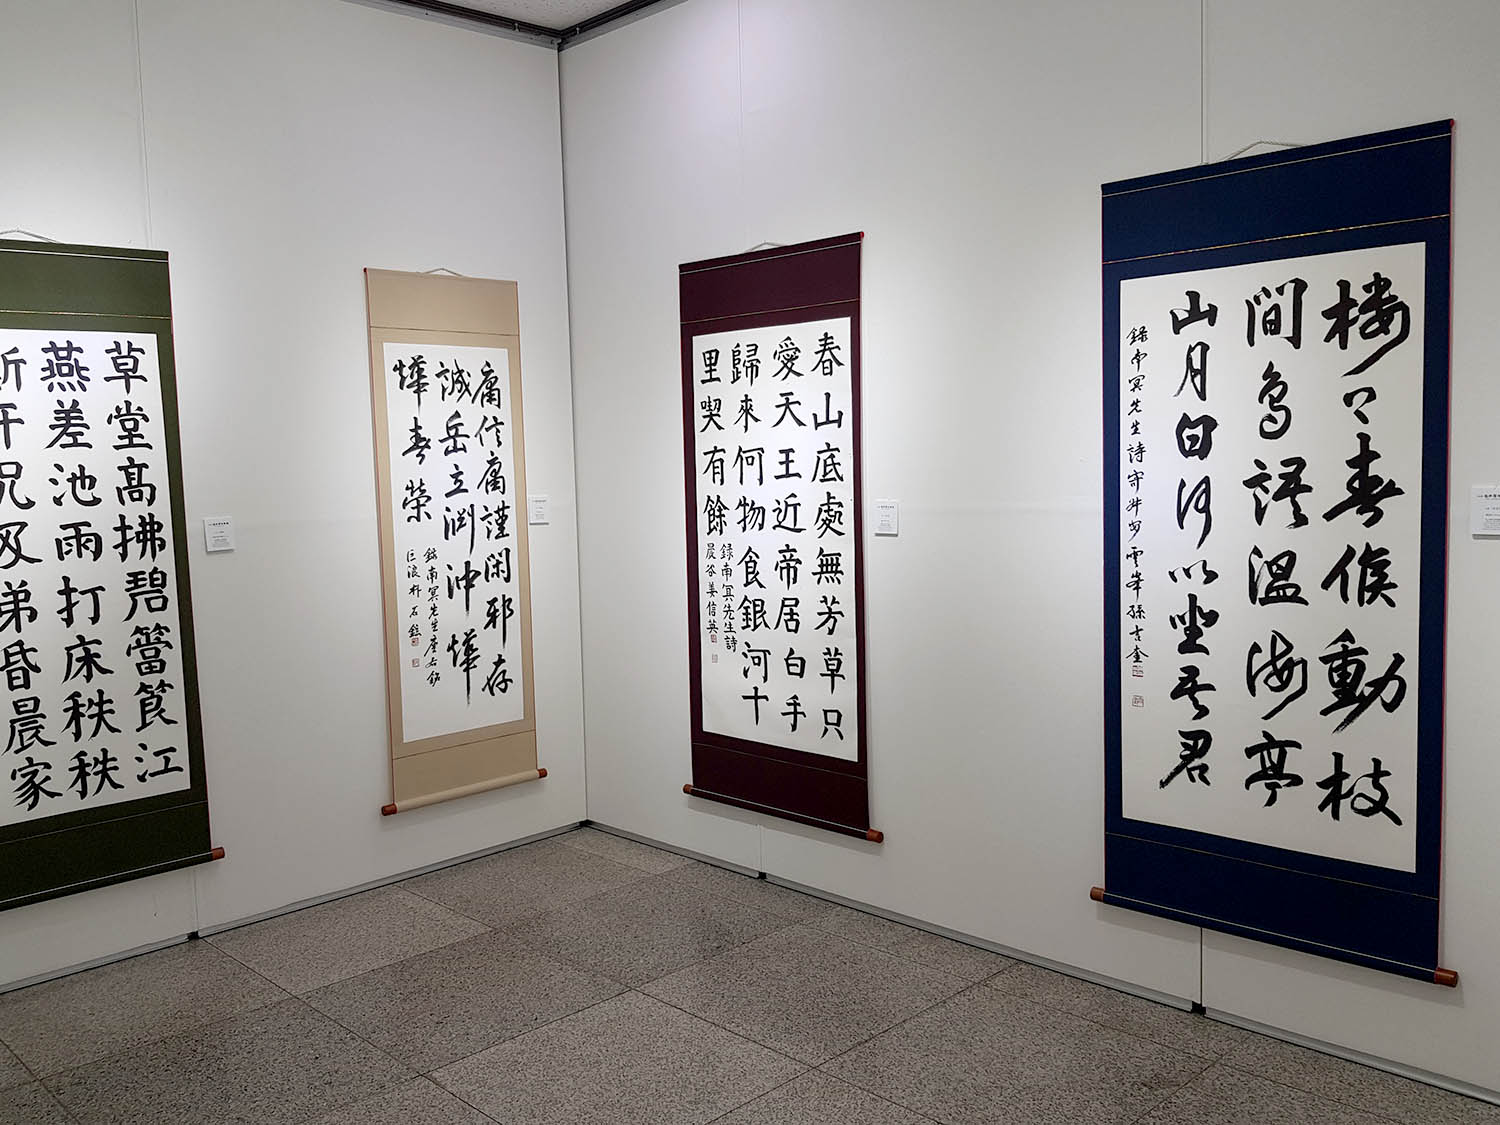 草堂高拂碧簹筤江
燕差池雨打床秩秩
斯干兄及弟昏晨家
庸信庸謹閑邪存
誠岳立淵冲燁
燁春榮
錄南冥先生座右銘
春山底處無芳草只
愛天王近帝居白手
歸來何物食銀河十
里喫有餘
録南冥先生詩
晨谷姜信英
梅上春候動枝
間鳥語溫海亭
山月白何以坐吾君
録南冥先生詩寄叔安雲峯孫吉奎